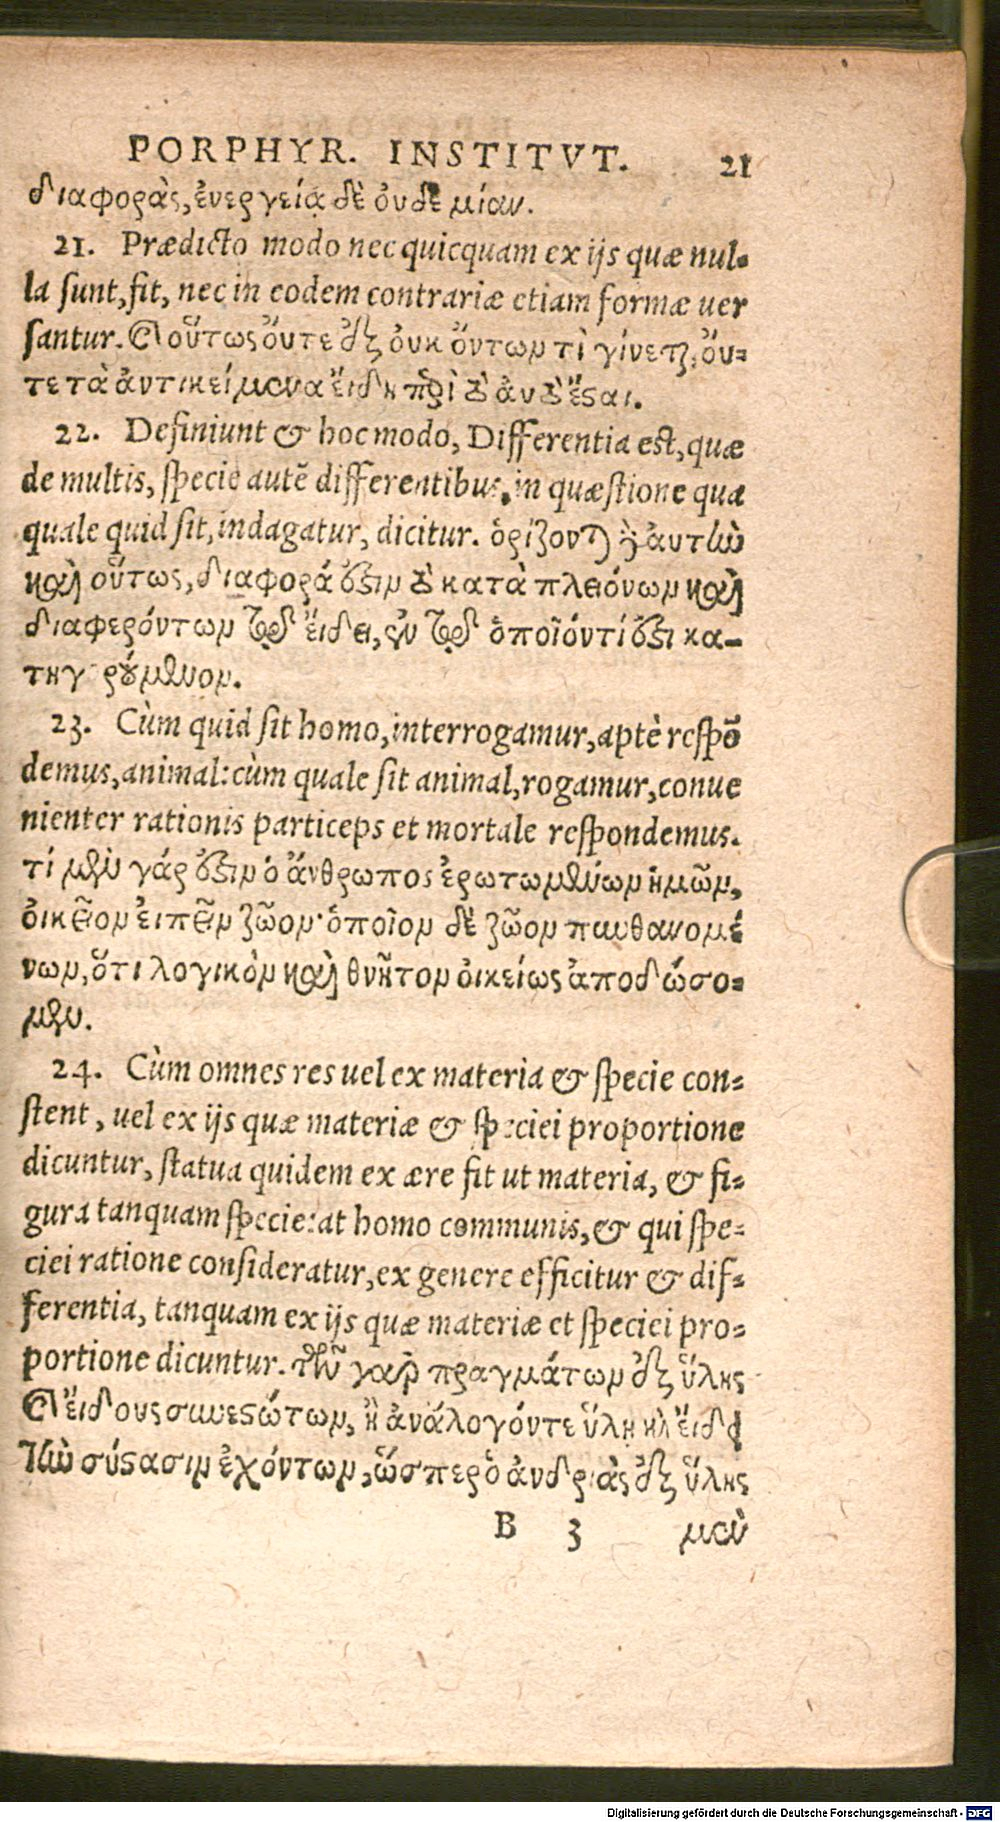 PORPHYR. INSTITVT. 21
διαφορὰς, ἐνεργείᾳ δὲ ὀυδὲ μίαν.
21. Prædicto modo nec quicquam ex ijs quæ nul-
la sunt, fit, nec in eodem contrariæ etiam formæ uer
santur. καὶ οὕτως ὄυτε ἐξ ὀυκ ὄντων τὶ γίνεται, ὄυ-
τε τὰ ἀντικείμενα ἔιδη περὶ τὸ ἀυτὸ ἔςαι.
22. Definiunt & hoc modo, Differentia est, quæ
de multis, specie autē differentibus, in quæstione qua
quale quid sit, indagatur, dicitur. ὁρίζονται δὲ ἀυτὴν
καὶ οὕτως, διαφορά ἐςιν τὸ κατὰ πλειόνων καὶ
διαφερόντων τῷ ἔιδει, ἐν τῷ ὁποῖόν τί ἐςι κα-
τηγορούμενον.
23. Cùm quid sit homo, interrogamur, aptè respō
demus, animal: cùm quale sit animal, rogamur, conue
nienter rationis particeps et mortale respondemus.
τί μὲν γάρ ἐςιν ὁ ἄνθρωπος ἐρωτωμένων ἡμῶν,
ὀικεῖον ἐιπεῖν ζῶον· ὁποῖον δὲ ζῶον πυνθανομέ
νων, ὅτι λογικὸν καὶ θνητον ὀικείως ἀποδώσο-
μεν.
24. Cùm omnes res uel ex materia & specie con-
stent, uel ex ijs quæ materiæ & speciei proportione
dicuntur, statua quidem ex ære fit ut materia, & fi-
gura tanquam specie: at homo communis, & qui spe-
ciei ratione consideratur, ex genere efficitur & dif-
ferentia, tanquam ex ijs quæ materiæ et speciei pro-
portione dicuntur. τῶν γαρ πραγμάτων ἐξ ὕλης
καὶ ἔιδους συνεςώτων, ἢ ἀνάλογόν τε ὕλη καὶ ἔιδει
τὴν σύςασιν ἐχόντων, ὥσπερ ὁ ἀνδριὰς ἐξ ὕλης
B 3 μὲν
Digitalisierung gefördert durch die Deutsche Forschungsgemeinschaft - DFG